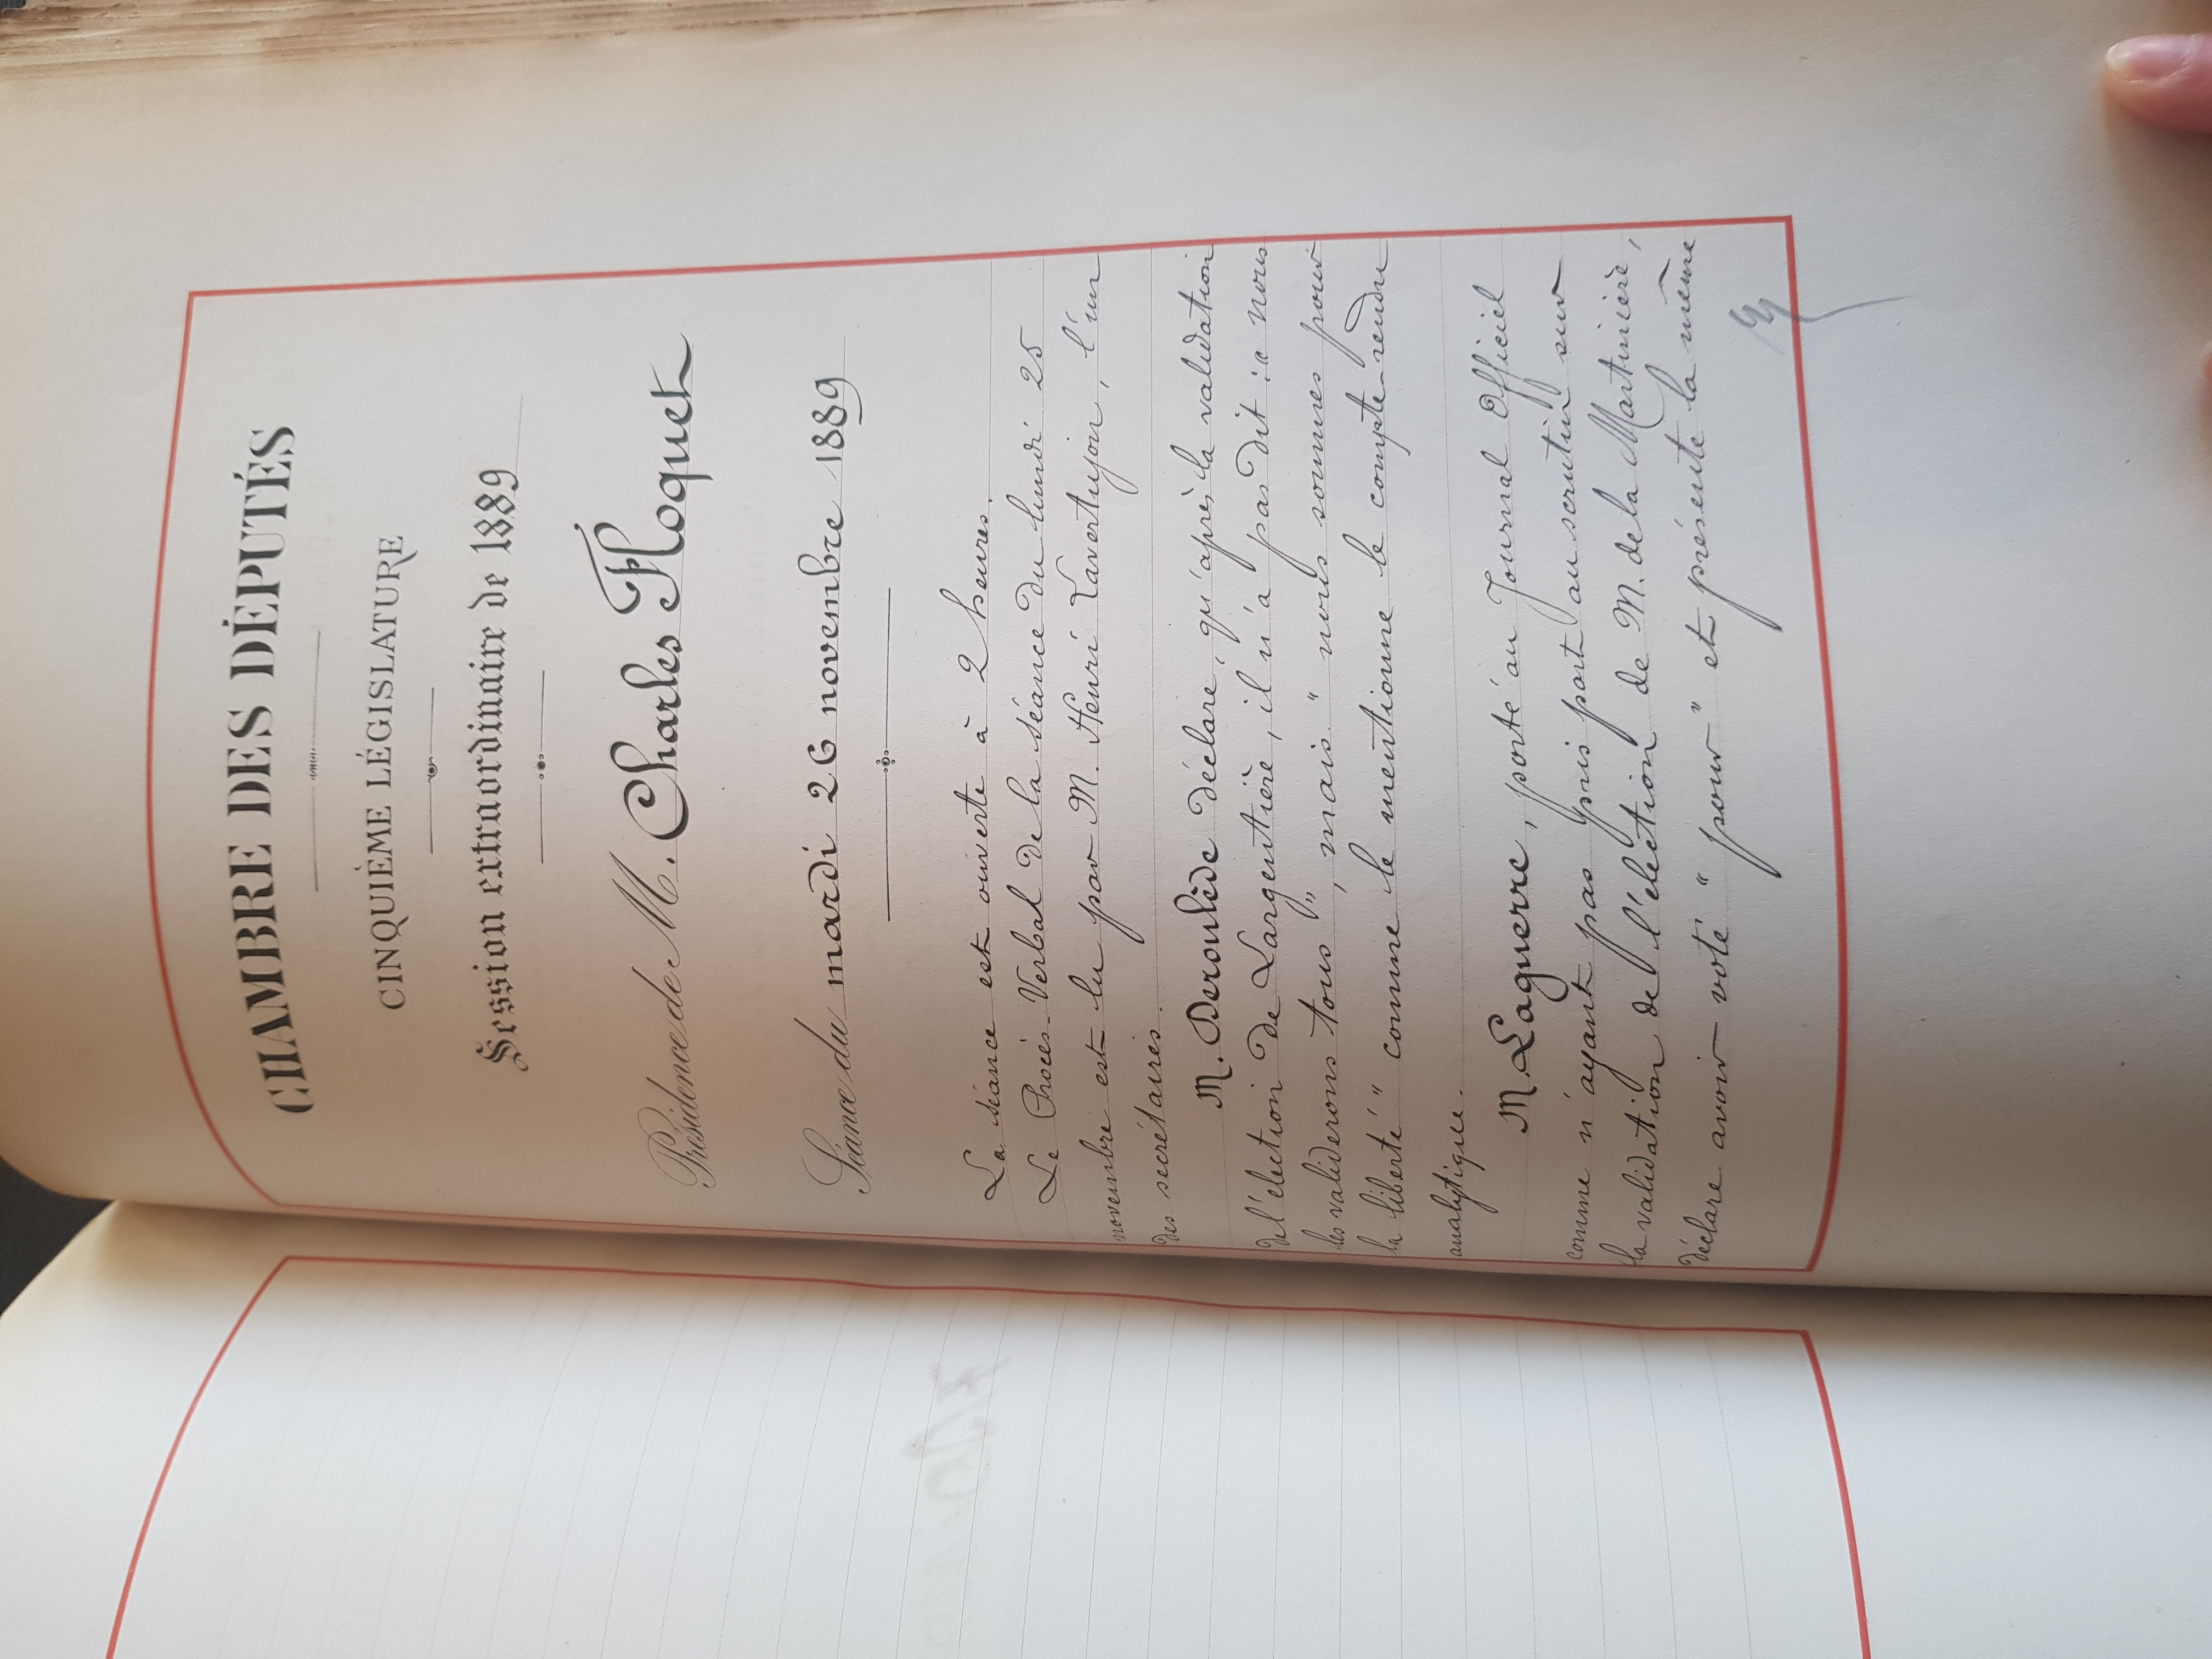 CHAMBRE DES DÉPUTÉS
CINQUIÈME LÉGISLATURE
Session extraordinaire de 1889
Présidence de M. Charles Floquet
Séance du mardi 26 novembre 1889
La séance est ouverte à 2 heures.
Le Procès-Verbal de la séance du lundi 25
novembre est lu par M. Henri Lavertujon, l'un
des secrétaires.
M. Deroulède déclare, qu'après la validation
de l'élection de Largentière, il n'a pas dit : « nous
les validerons tous ", mais " nous sommes pour
la liberté " comme le mentionne le compte-rendu
analytique.
M. Laguerre, porté au Journal Officiel
comme n'ayant pas pris part au scrutin sur
la validation de l'élection de M. de la Martinière,
déclare avoir voté " pour " et présente la même